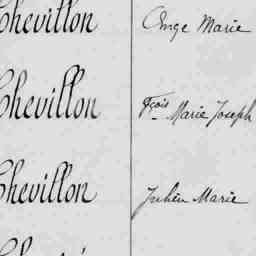 Chevillon Ange Marie
Chevillon Fçois Marie Joseph
Chevillon Julien Marie